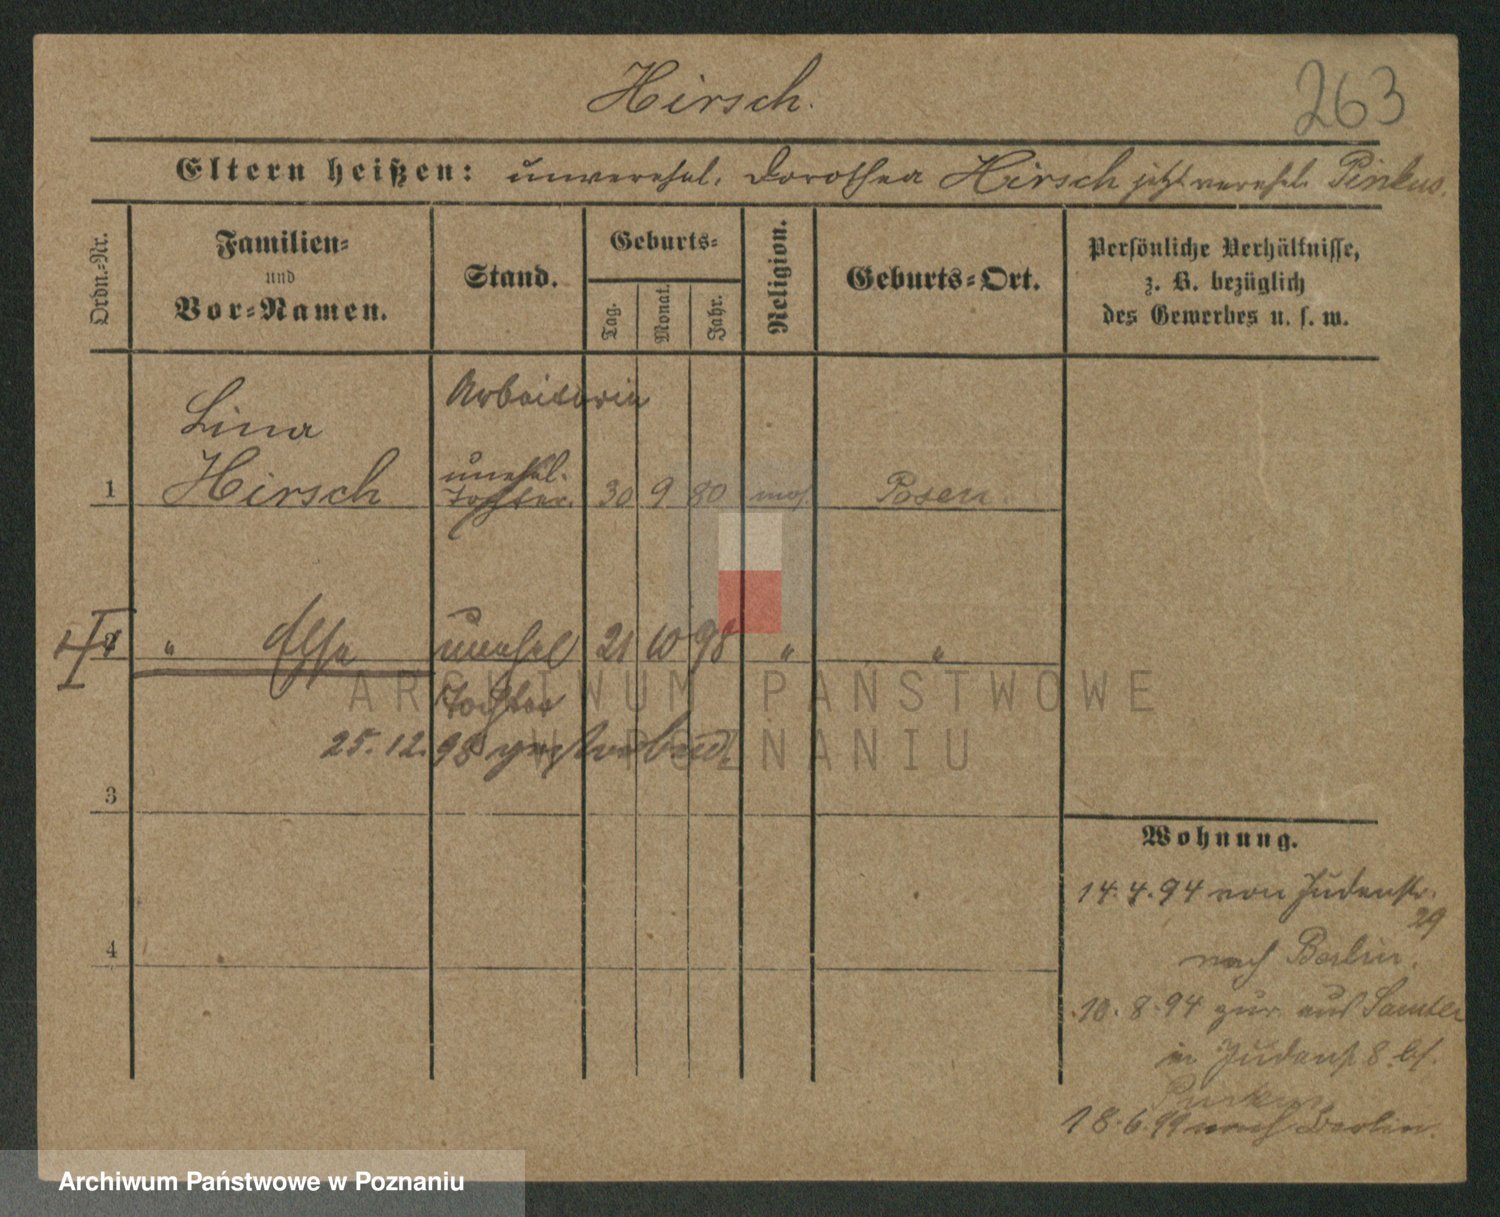 Hirsch.
263
Eltern heißen: unverehel. Dorothea Hirsch jetzt verehel. Pinkus.
Ordn.-Nr.
Familien-
und
Vor-Namen.
Stand.
Geburts-
Tag.
Monat.
Jahr.
Religion.
Geburts-Ort.
Persönliche Verhältnisse,
z. B. bezüglich
des Gewerbes u. s. w.
Arbeiterin
Lina
unehel.
1 Hirsch Tochter. 30 9 80 mos. Posen.
" Else unehel 21 10 98 " "
Tochter
25.12.98 gestorben
3
4
Wohnung.
14.4.94 von Judenstr.
29
nach Berlin.
10.8.94 zur. aus Samter
in Judenst 8. bs.
Pinkus
18.6.99 nach Berlin.
ARCHIWUM PAŃSTWOWE
W POZNANIU
Archiwum Państwowe w Poznaniu